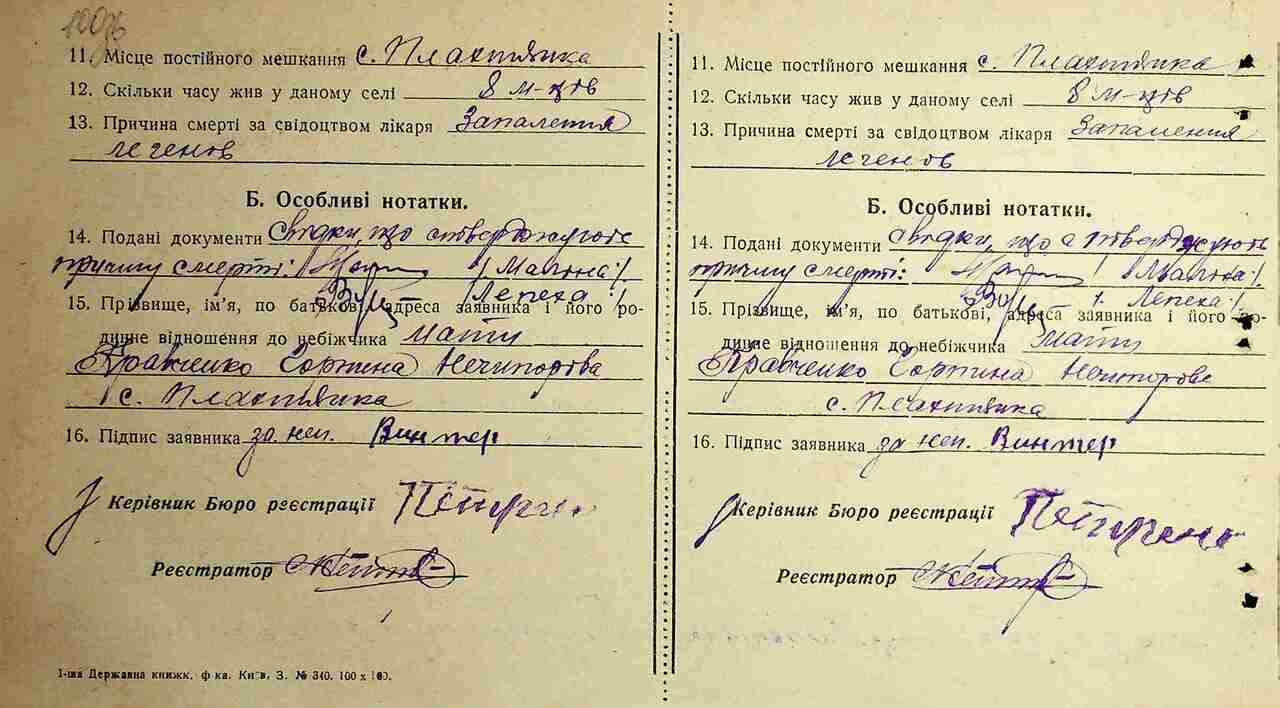 100зв
11. Місце постійного мешкання с. Плахтянка
12. Скільки часу жив у даному селі 8 м-ців
13. Причина смерті за свідоцтвом лікаря Запалення
легенов
Б. Особливі нотатки.
14. Подані документи Свідки, що стверджують
причину смерті: /Маліна:/
/Лепеха:/
15. Прізвище, ім'я, по батькові, адреса заявника і його ро-
динне відношення до небіжчика мати
Кравченко Горпина Нечипорова
с. Плахтянка
16. Підпис заявника за неп. Винтер
Керівник Бюро реєстрації Петренко
Реєстратор
1-ша Державна книжк. ф-ка, Київ, З. № 340. 100 x 100.
11. Місце постійного мешкання с. Плахтянка
12. Скільки часу жив у даному селі 8 м-ців
13. Причина смерті за свідоцтвом лікаря Запалення
легенов
Б. Особливі нотатки.
14. Подані документи свідки, що стверджують
причину смерті: /Маліна:/
/. Лепеха:/
15. Прізвище, ім'я, по батькові, адреса заявника і його ро-
динне відношення до небіжчика мати
Кравченко Горпина Нечипорова
с. Плахтянка
16. Підпис заявника за неп. Винтер
Керівник Бюро реєстрації Петренко
Реєстратор